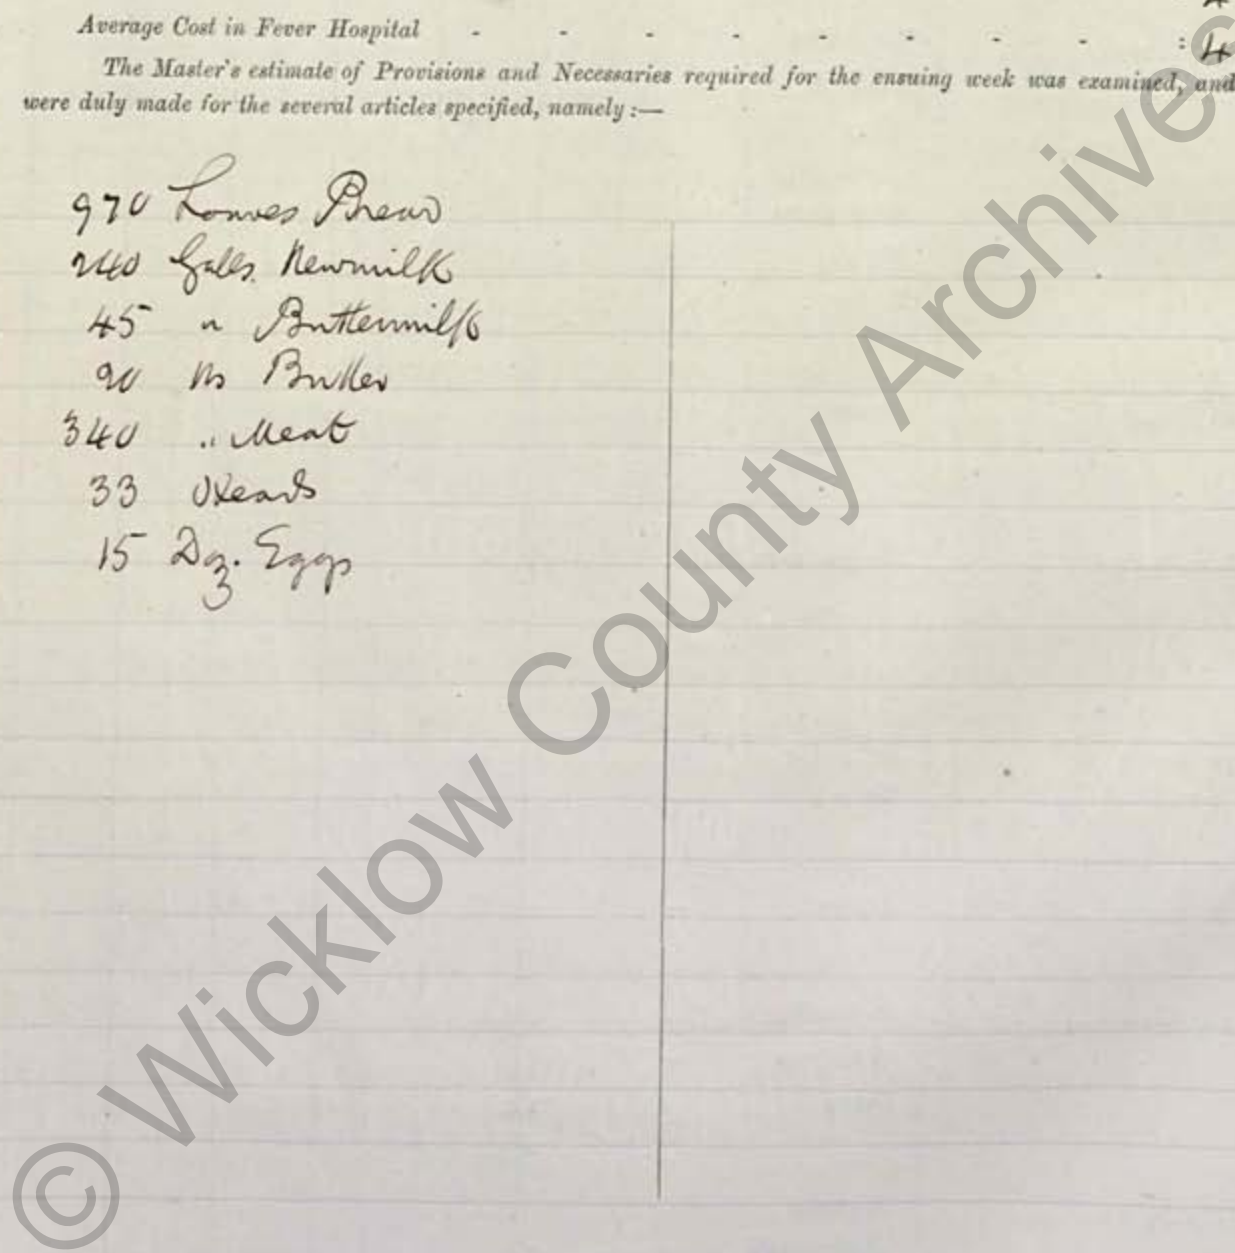 Average Cost in Fever Hospital - - - - - - - - : 4
The Master's estimate of Provisions and Necessaries required for the ensuing week was examined, and
were duly made for the several articles specified, namely :—
970 Loaves Bread
240 Galls. Newmilk
45 " Buttermilk
90 lbs Butter
340 " Meat
33 Oxeads
15 Doz. Eggs
© Wicklow County Archives